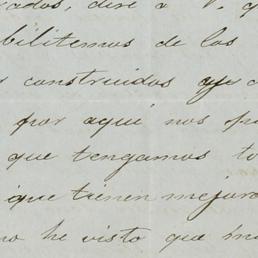 ados, diré a V. q
bilitemos de los
construidos que
por aquí nos p
que tengamos to
que tienen mejora
no he visto que